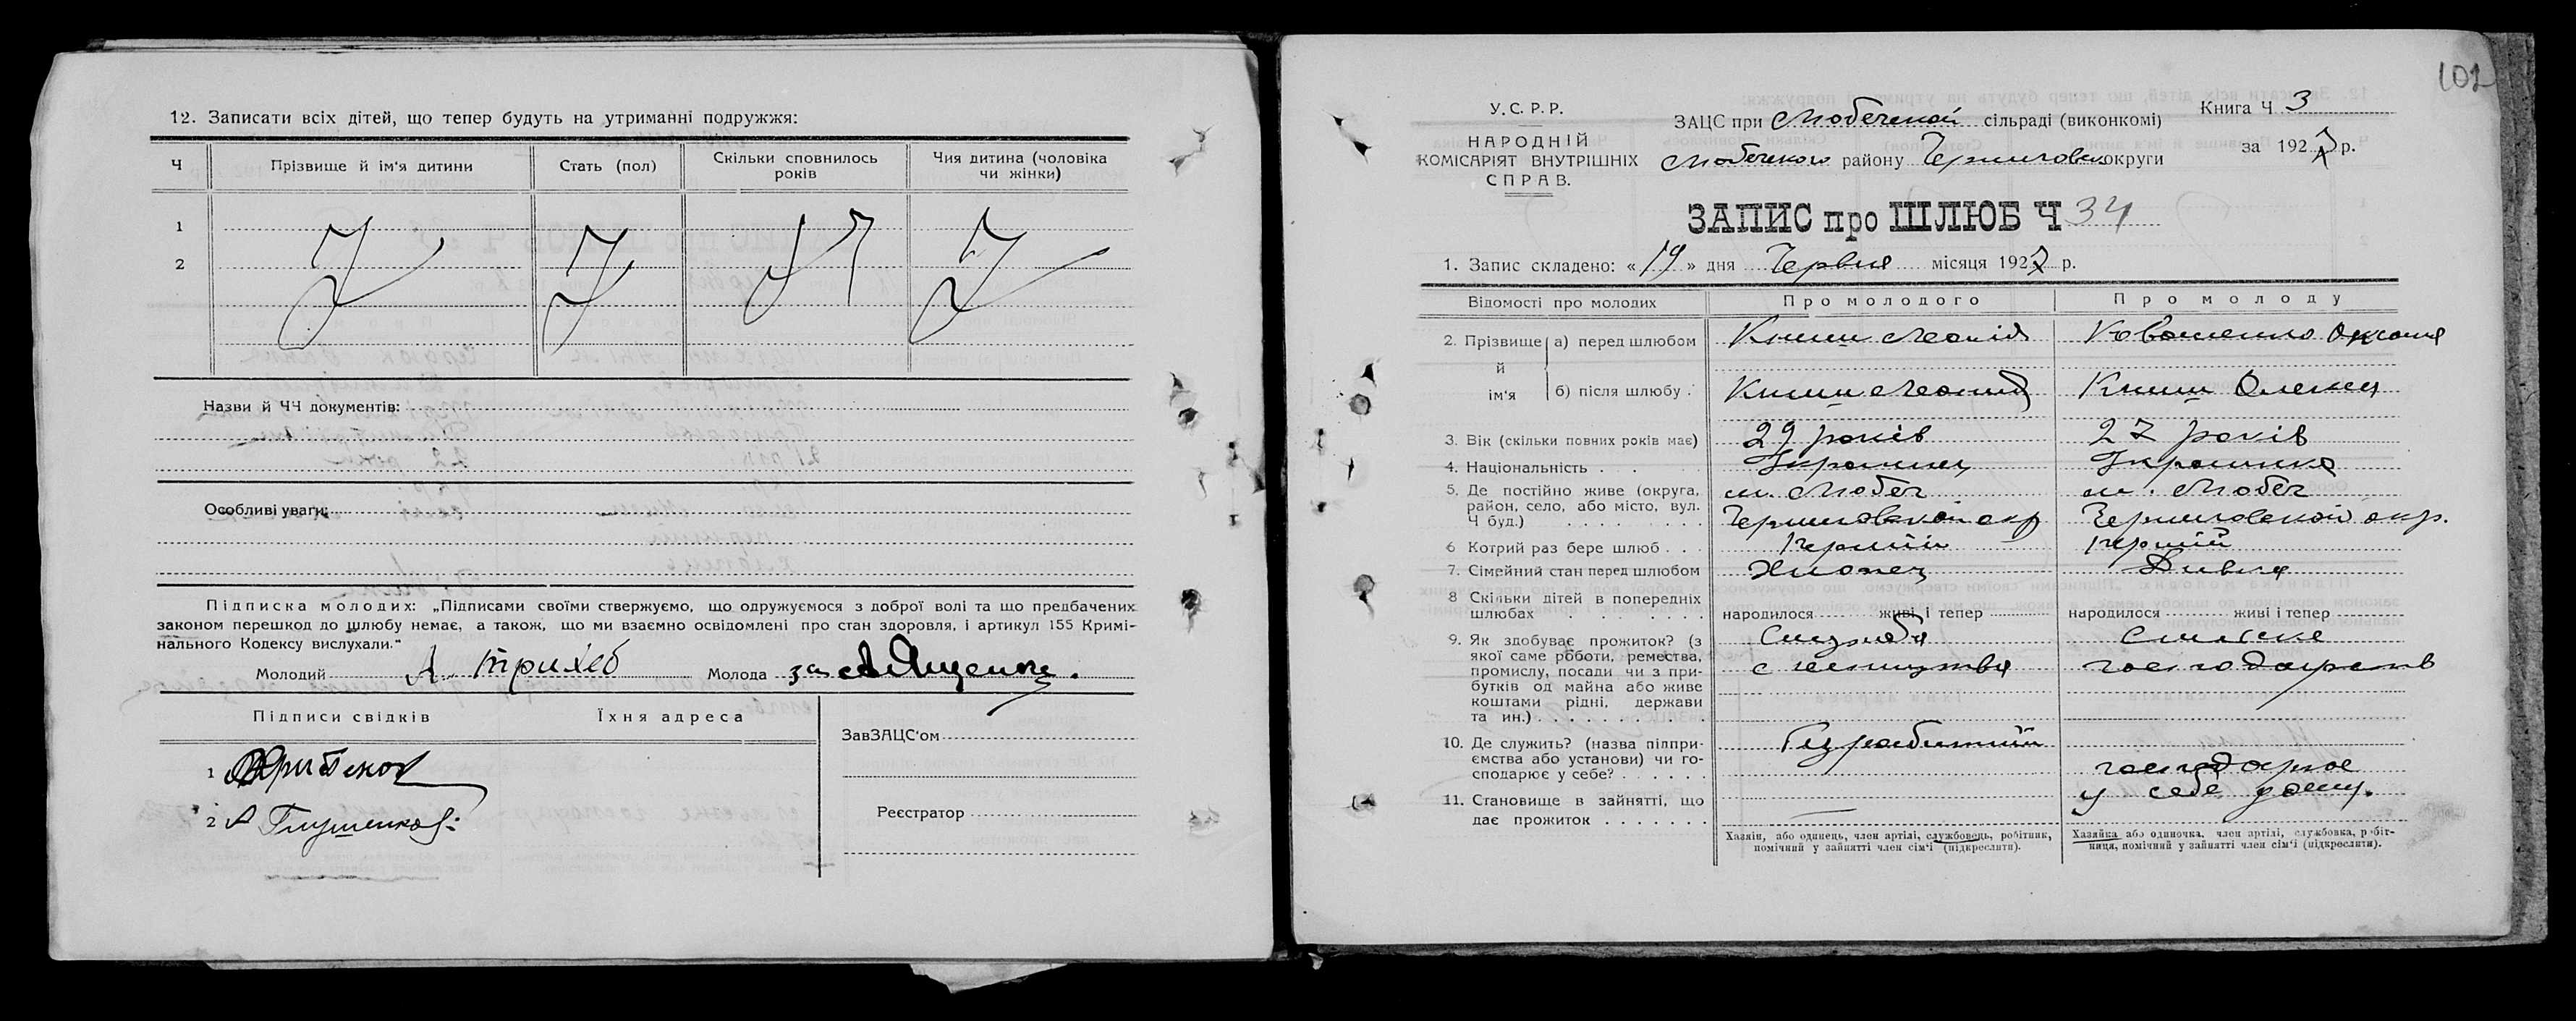 12. Записати всіх дітей, що тепер будуть на утриманні подружжя:
Ч Прізвище й ім'я дитини Стать (пол) Скільки сповнилось років Чия дитина (чоловіка чи жінки)
1
2
Назви й ЧЧ документів:
Особливі уваги:
Підписка молодих: „Підписами своїми стверджуємо, що одружуємося з доброї волі та що предбачених
законом перешкод до шлюбу немає, а також, що ми взаємно освідомлені про стан здоровля, і артикул 155 Кримі-
нального Кодексу вислухали."
Молодий Молода за
Підписи свідків Їхня адреса
ЗавЗАЦС'ом
1
Реєстратор
2
102
У.С.Р.Р.
НАРОДНІЙ
КОМІСАРІЯТ ВНУТРІШНІХ
СПРАВ.
ЗАЦС при Любеческой сільраді (виконкомі)
Любечского району Черниговск округи
Книга Ч 3
за 1927 р.
ЗАПИС про ШЛЮБ Ч 34
1. Запис складено: « 19 » дня Червня місяця 1927 р.
Відомості про молодих Про молодого Про молоду
2. Прізвище й ім'я а) перед шлюбом Книш Леонід Оксана
б) після шлюбу Книш Леонид Книш
3. Вік (скільки повних років має) 29 років 27 років
4. Національність Українец Українка
5. Де постійно живе (округа, район, село, або місто, вул. Ч буд.) м. Любеч Черниговской окр м. Любеч Черниговской окр.
6 Котрий раз бере шлюб Перший Перший
7. Сімейний стан перед шлюбом Хлопец Дивка
8 Скільки дітей в попередніх шлюбах народилося живі і тепер народилося живі і тепер
9. Як здобуває прожиток? (з якої саме роботи, ремества, промислу, посади чи з прибутків од майна або живе коштами рідні, держави та ин.) Сільське господарств
10. Де служить? (назва підприємства або установи) чи господарює у себе? господарює у себе дому.
11. Становище в зайнятті, що дає прожиток
Хазяін, або одинець, член артілі, службовець, робітник, помічний у зайнятті член сім'ї (підкреслити).
Хазяйка або одиночка, член артілі, службовка, робітниця, помічний у зайнятті член сім'ї (підкреслити).